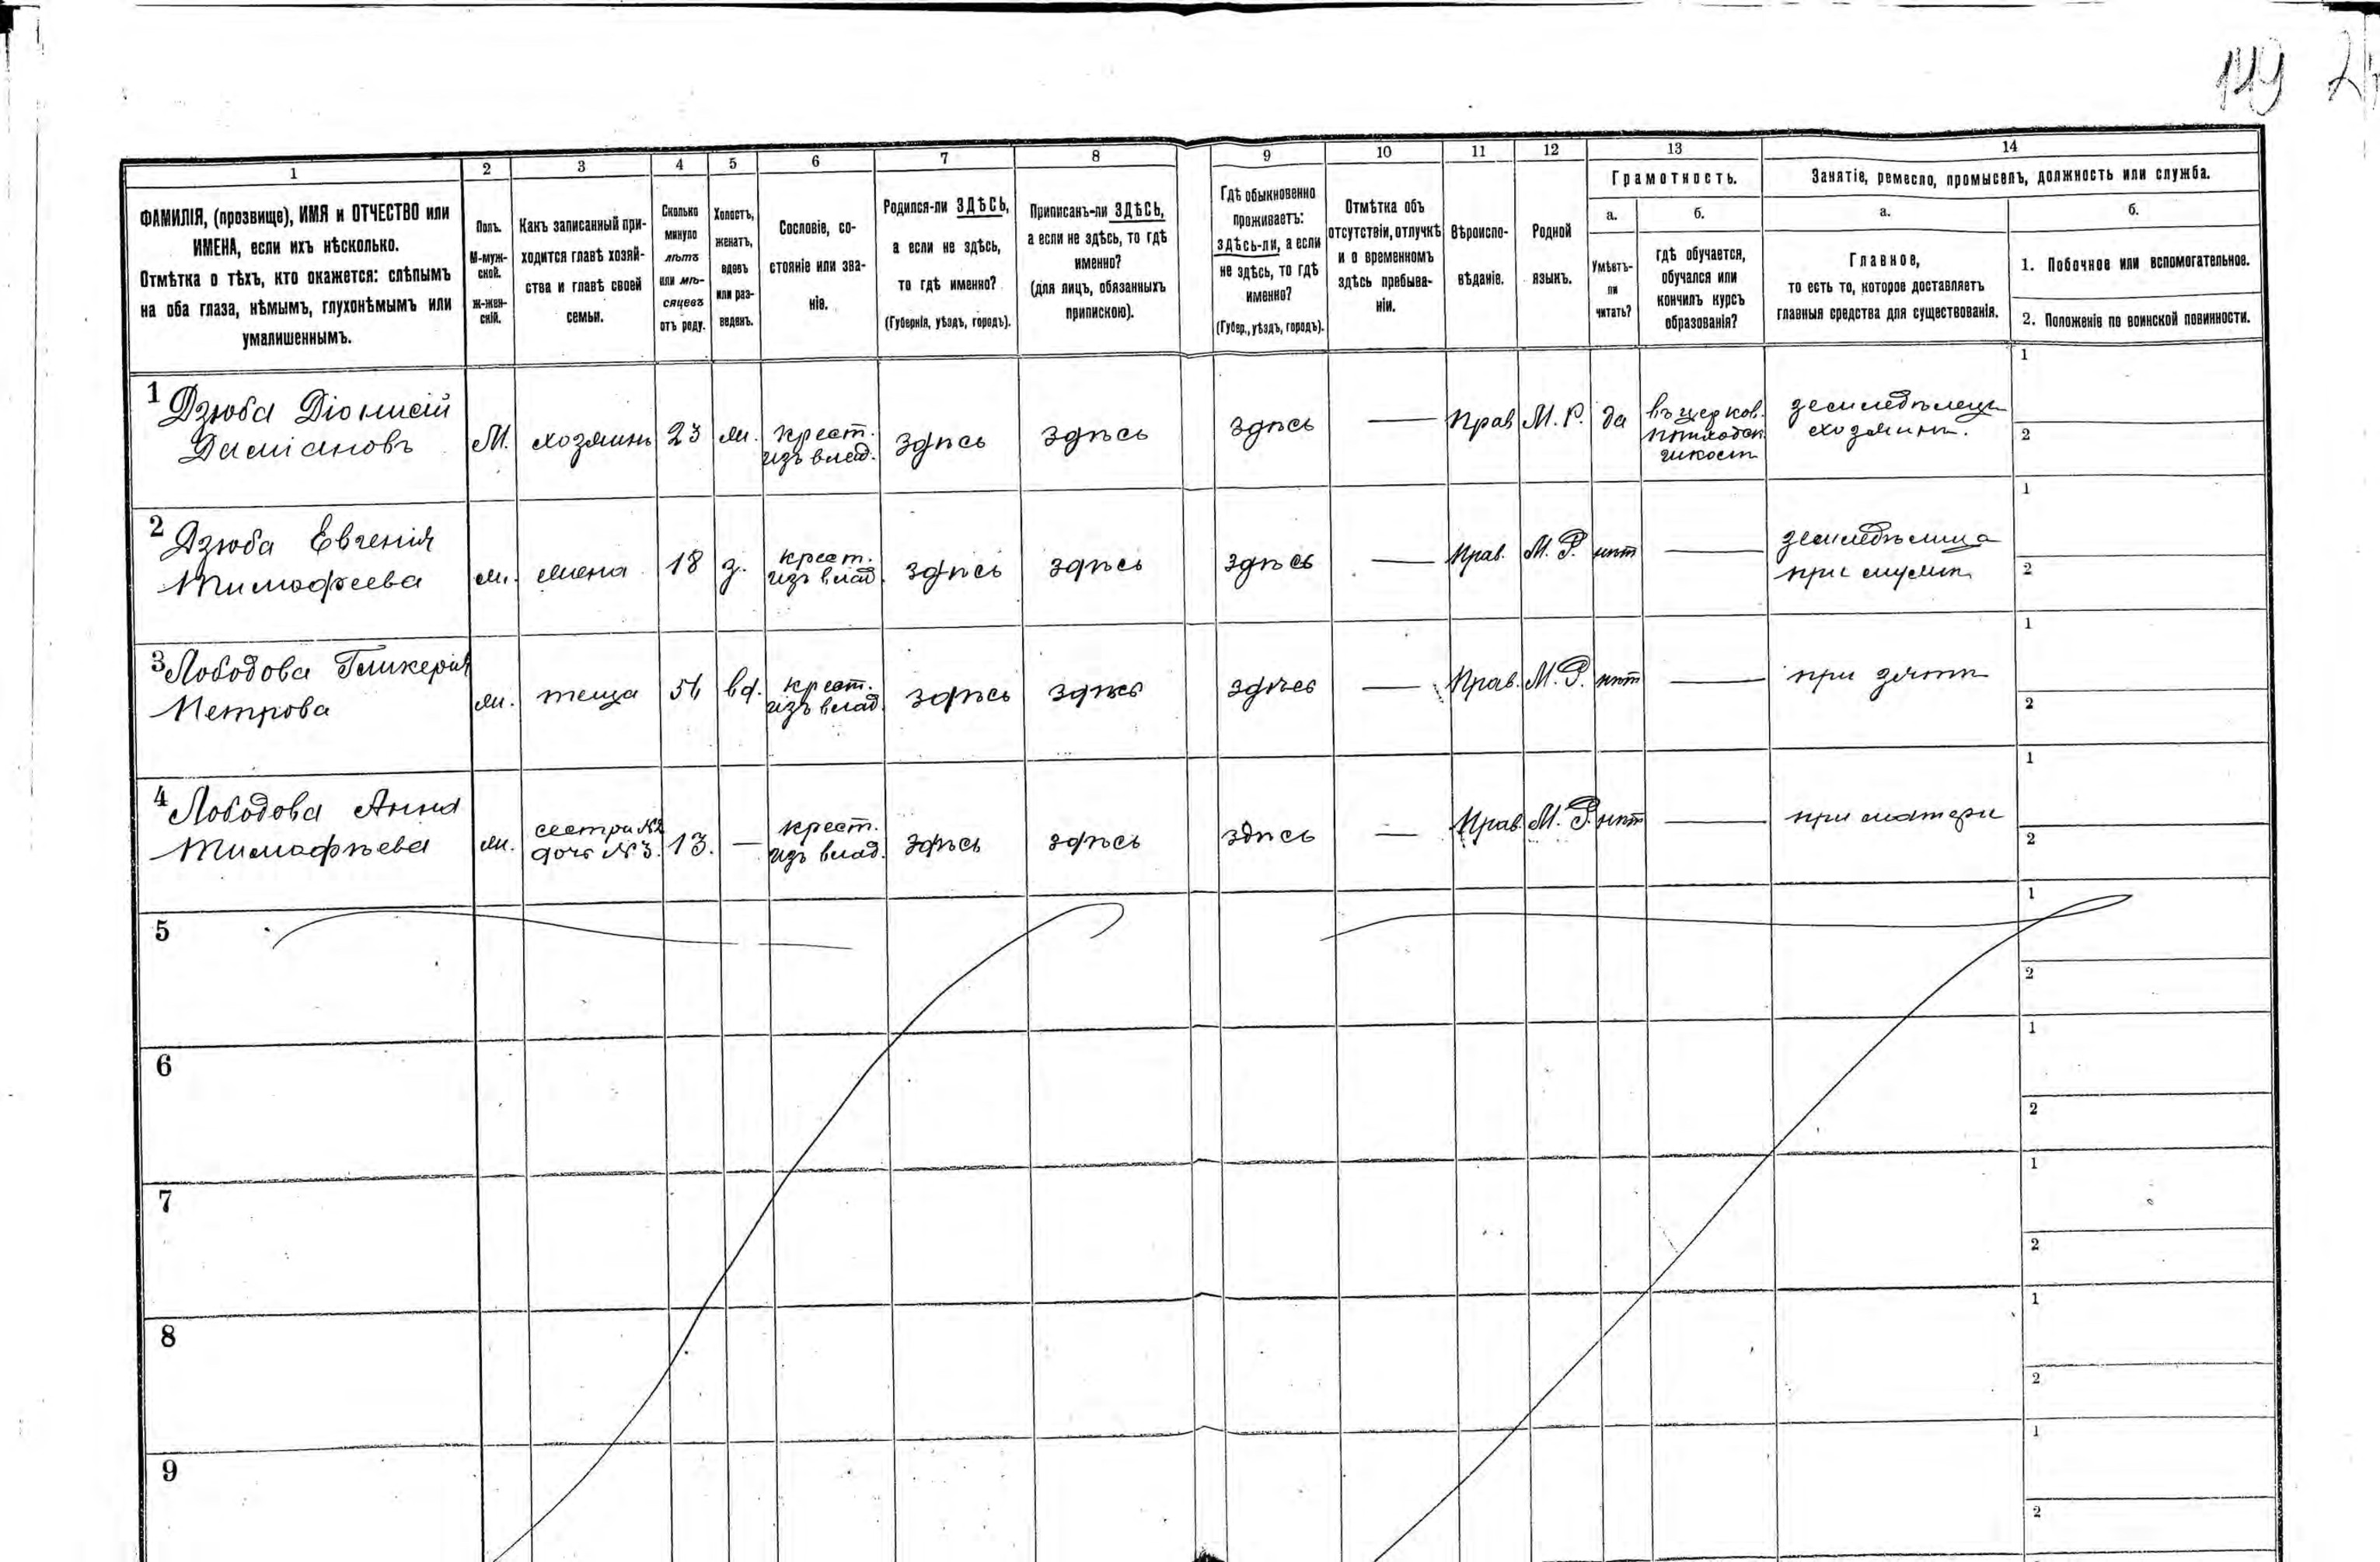 119
1 2 3 4 5 6 7 8 9 10 11 12 13 14
ФАМИЛІЯ, (прозвище), ИМЯ и ОТЧЕСТВО или
ИМЕНА, если ихъ нѣсколько.
Отмѣтка о тѣхъ, кто окажется: слѣпымъ
на оба глаза, нѣмымъ, глухонѣмымъ или
умалишеннымъ.
Полъ.
М-муж-
ской.
Ж-жен-
скій.
Какъ записанный при-
ходится главѣ хозяй-
ства и главѣ своей
семьи.
Сколько
минуло
лѣтъ
или мѣ-
сяцевъ
отъ роду.
Холостъ,
женатъ,
вдовъ
или раз-
веденъ.
Сословіе, со-
стояніе или зва-
ніе.
Родился-ли ЗДѢСЬ,
а если не здѣсь,
то гдѣ именно?
(Губернія, уѣздъ, городъ).
Приписанъ-ли ЗДѢСЬ,
а если не здѣсь, то гдѣ
именно?
(для лицъ, обязанныхъ
припискою).
Гдѣ обыкновенно
проживаетъ:
здѣсь-ли, а если
не здѣсь, то гдѣ
именно?
(Губер., уѣздъ, городъ).
Отмѣтка объ
отсутствіи, отлучкѣ
и о временномъ
здѣсь пребыва-
ніи.
Вѣроиспо-
вѣданіе.
Родной
языкъ.
Грамотность.
а.
Умѣетъ-
ли
читать?
б.
гдѣ обучается,
обучался или
кончилъ курсъ
образованія?
Занятіе, ремесло, промыселъ, должность или служба.
а.
Главное,
то есть то, которое доставляетъ
главныя средства для существованія.
б.
1. Побочное или вспомогательное.
2. Положеніе по воинской повинности.
1 Дзюба Діонисій
Даміановъ
М.
хозяинъ
23
ж.
крест.
изъ влад.
здѣсь
здѣсь
здѣсь
—
Прав
М. Р.
да
въ церков.
приходск.
земледѣлецъ
хозяинъ.
1
2
2 Дзюба Евгенія
Тимофеева
ж.
жена
18
з.
крест.
изъ влад.
здѣсь
здѣсь
здѣсь
—
Прав.
М. Р.
нѣт
—
земледѣлица
при мужѣ
1
2
3 Лободова Гликерія
Петрова
ж.
теща
54
вд.
крест.
изъ влад.
здѣсь
здѣсь
здѣсь
—
Прав.
М. Р.
нѣт
—
при зятѣ
1
2
4 Лободова Анна
Тимофѣева
ж.
сестра №2
дочь №3.
13.
—
крест.
изъ влад.
здѣсь
здѣсь
здѣсь
—
Прав.
М. Р.
нѣт
—
при матери
1
2
5
1
2
6
1
2
7
1
2
8
1
2
9
1
2